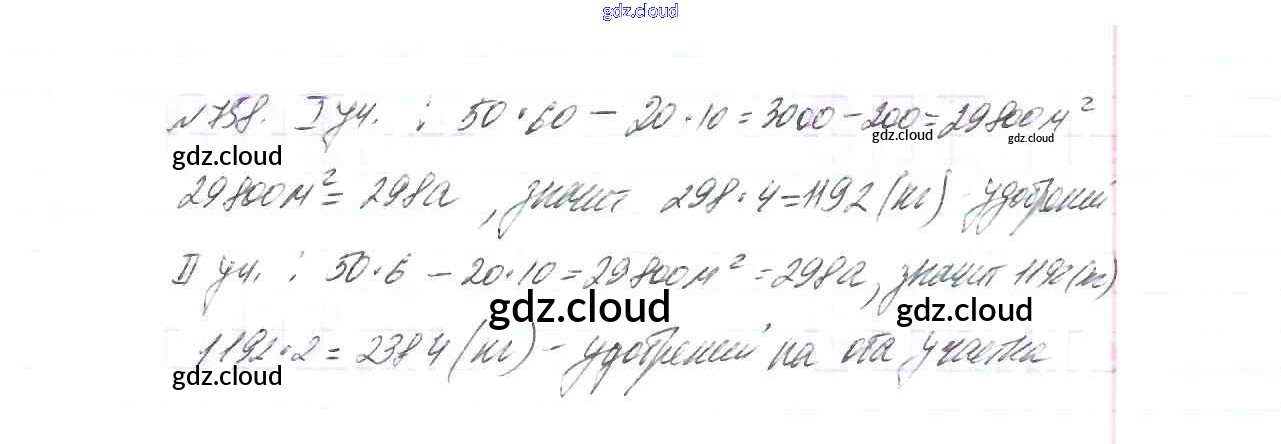 gdz.cloud
№758. I уч. : 50·60 - 20·10 = 3000 - 200 = 29800м²
gdz.cloud gdz.cloud gdz.cloud
29800м² = 298а, значит 298·4=1192 (кг) - удобрений
II уч. : 50·6 - 20·10 = 29800м² = 298а, значит 1192(кг)
gdz.cloud gdz.cloud
1192·2 = 2384 (кг) - удобрений на оба участка
gdz.cloud